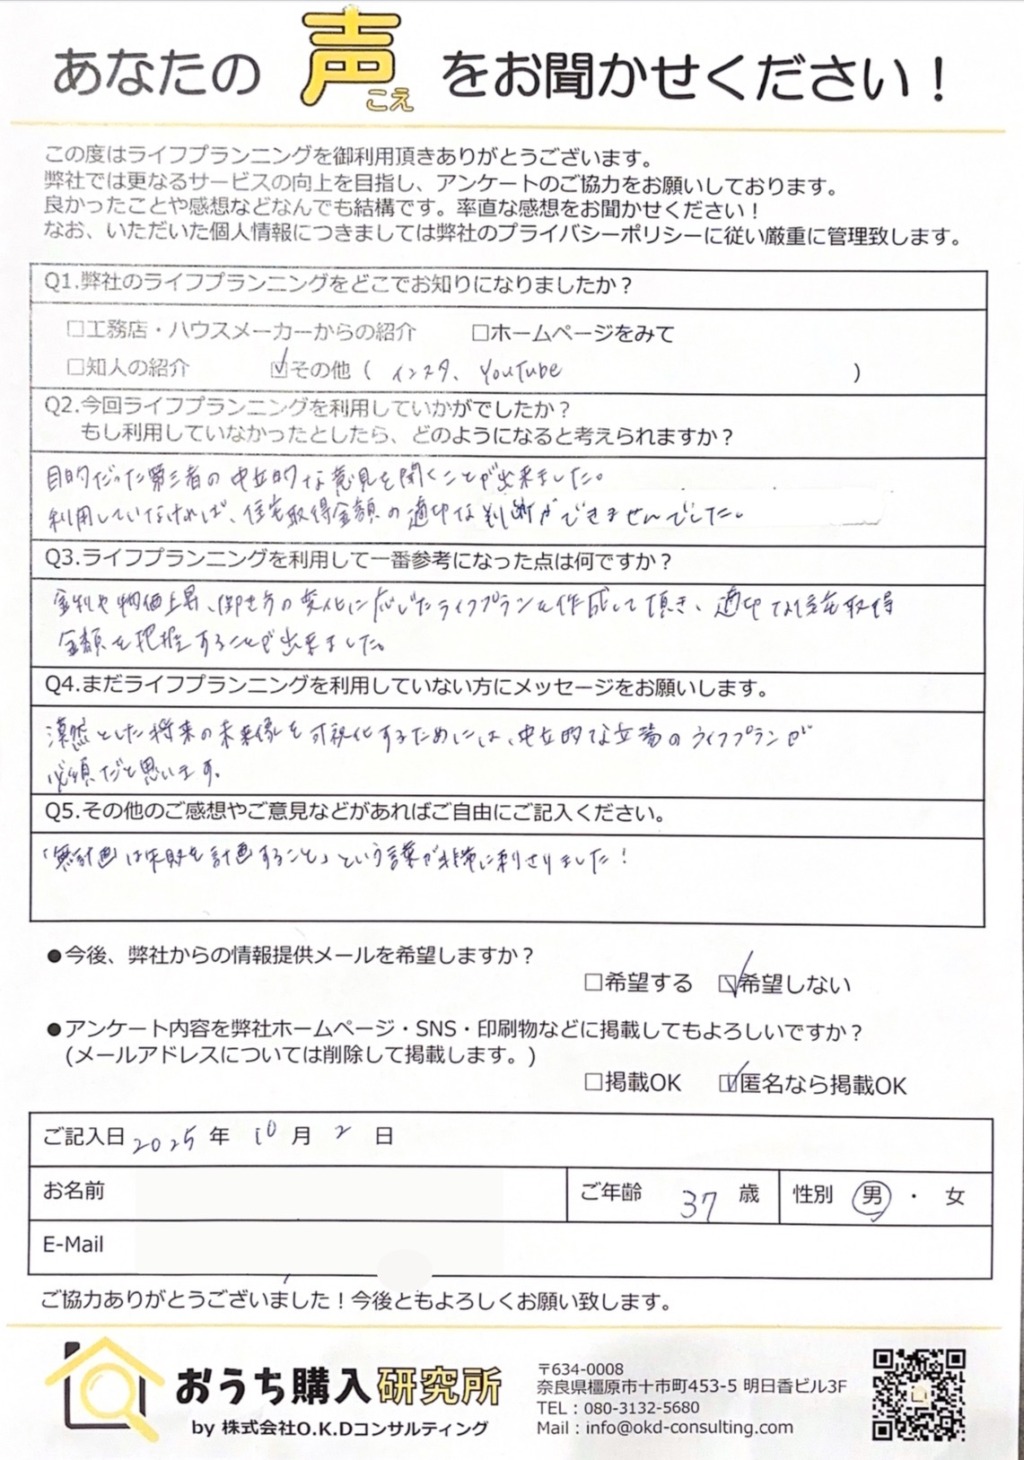 あなたの声をお聞かせください!
こえ
この度はライフプランニングを御利用頂きありがとうございます。
弊社では更なるサービスの向上を目指し、アンケートのご協力をお願いしております。
良かったことや感想などなんでも結構です。率直な感想をお聞かせください!
なお、いただいた個人情報につきましては弊社のプライバシーポリシーに従い厳重に管理致します。
Q1.弊社のライフプランニングをどこでお知りになりましたか?
□工務店・ハウスメーカーからの紹介 □ホームページをみて
□知人の紹介 ☑その他( インスタ、YouTube )
Q2.今回ライフプランニングを利用していかがでしたか?
もし利用していなかったとしたら、どのようになると考えられますか?
目的だった第三者の中立的な意見を聞くことが出来ました。
利用していなければ、住宅取得金額の適切な判断ができませんでした。
Q3.ライフプランニングを利用して一番参考になった点は何ですか?
金利や物価上昇、働き方の変化に応じたライフプランを作成して頂き、適切な住宅取得
金額を把握することが出来ました。
Q4.まだライフプランニングを利用していない方にメッセージをお願いします。
漠然とした将来の未来像を可視化するためには、中立的な立場のライフプランが
必須だと思います。
Q5.その他のご感想やご意見などがあればご自由にご記入ください。
「無計画は失敗を計画すること」という言葉が非常に刺さりました!
●今後、弊社からの情報提供メールを希望しますか?
□希望する ☑希望しない
●アンケート内容を弊社ホームページ・SNS・印刷物などに掲載してもよろしいですか?
(メールアドレスについては削除して掲載します。)
□掲載OK ☑匿名なら掲載OK
ご記入日 2025 年 10 月 2 日
お名前 ご年齢 37 歳 性別 男 ・ 女
E-Mail
ご協力ありがとうございました!今後ともよろしくお願い致します。
おうち購入研究所
by 株式会社O.K.Dコンサルティング
〒634-0008
奈良県橿原市十市町453-5 明日香ビル3F
TEL:080-3132-5680
Mail:info@okd-consulting.com